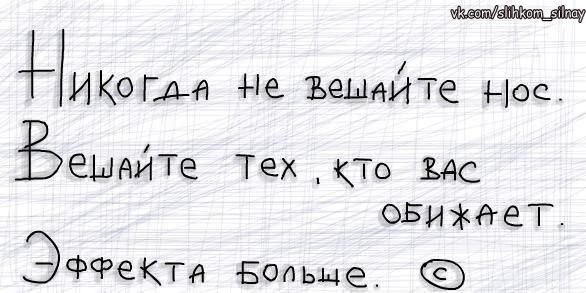 vk.com/slihkom_silnay
Никогда не вешайте нос.
Вешайте тех, кто вас
обижает.
Эффекта больше. ©